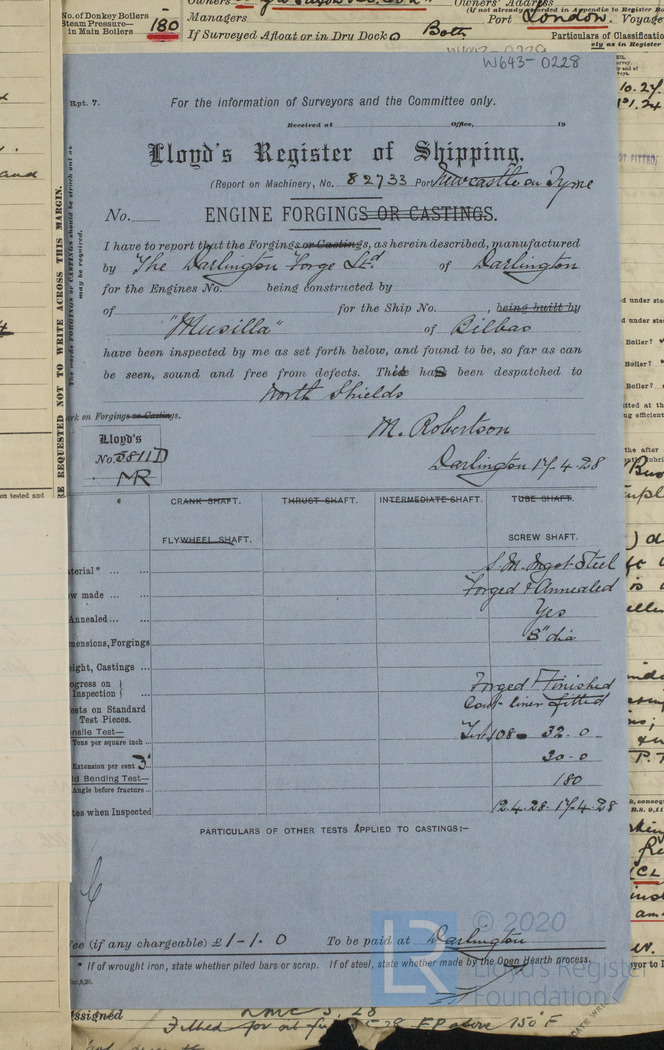 No. of Donkey Boilers
Steam Pressure—
in Main Boilers 180
Managers
If Surveyed Afloat or in Dry Dock Both
Owners' Address
(if not already recorded in Appendix to Register Bo
Port London. Voyage
Particulars of Classificatio
ely as in Register
W643-0229
W643-0228
Rpt. 7.
For the information of Surveyors and the Committee only.
Received at Office, 19
Lloyd's Register of Shipping.
(Report on Machinery, No. 82733 Port Newcastle on Tyne
No.
ENGINE FORGINGS OR CASTINGS.
I have to report that the Forgings or Castings, as herein described, manufactured
by The Darlington Forge Ltd of Darlington
for the Engines No. being constructed by
of for the Ship No. , being built by
"Musilla" of Bilbao
have been inspected by me as set forth below, and found to be, so far as can
be seen, sound and free from defects. This has been despatched to
North Shields
ark on Forgings or Castings.
Lloyd's
No. 5811D
MR
M. Robertson
Darlington 17.4.28
RE REQUESTED NOT TO WRITE ACROSS THIS MARGIN.
The words FORGINGS or CASTINGS should be struck out as
may be required.
*
CRANK SHAFT.
FLYWHEEL SHAFT.
THRUST SHAFT.
INTERMEDIATE SHAFT.
TUBE SHAFT.
SCREW SHAFT.
terial* ... ... S. M. Ingot Steel
w made ... ... Forged & Annealed
Annealed ... ... Yes
mensions, Forgings 8" dia
ight, Castings ...
ogress on }
Inspection } Forged & Finished
Cont. liner fitted
ests on Standard
Test Pieces.
nsile Test—
Tons per square inch ... 32.0
Extension per cent 3" 30.0
ld Bending Test—
Angle before fracture ... 180
tes when Inspected 12.4.28. 17.4.28
PARTICULARS OF OTHER TESTS APPLIED TO CASTINGS:—
ee (if any chargeable) £1-1.0 To be paid at Darlington
* If of wrought iron, state whether piled bars or scrap. If of steel, state whether made by the Open Hearth process.
© 2020
LR
Lloyd's Register
Foundation
ssigned
Fitted for oil fuel 5.28 F.P. above 150°F